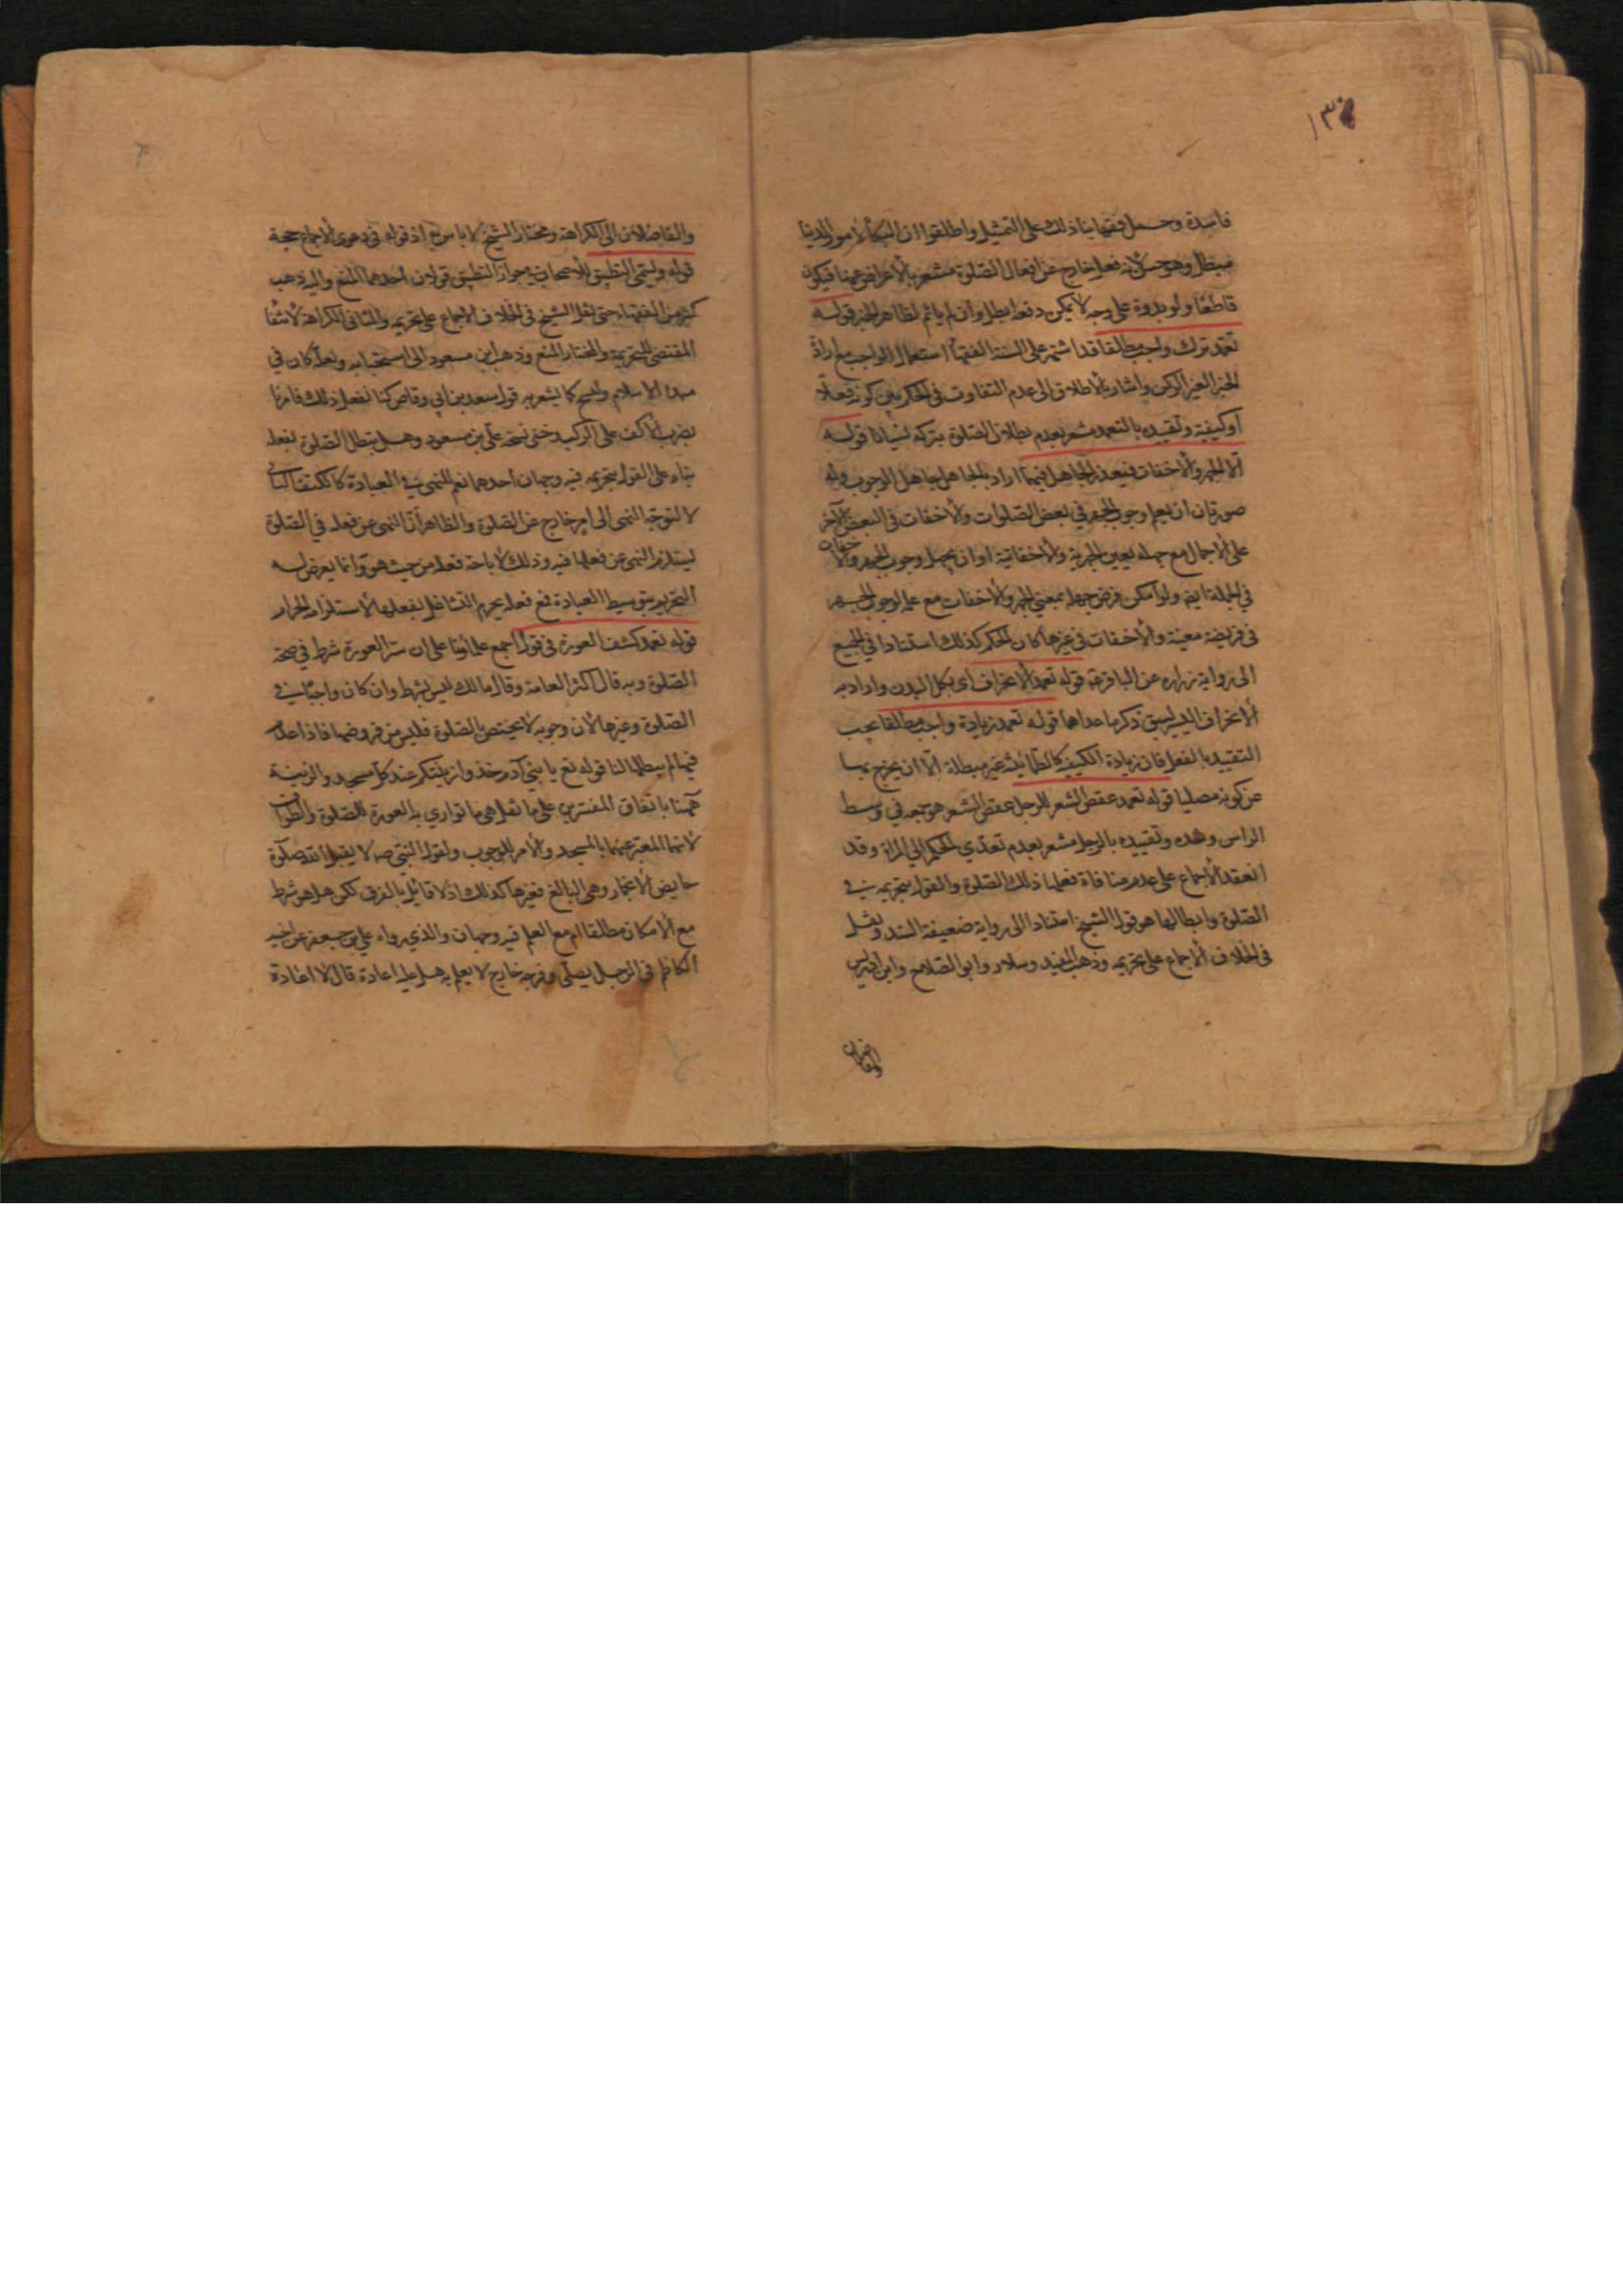 ١٣
فاسدة وحمل فقهاؤنا ذلك على التمثيل واطلقوا ان البكاء لامور الدنيا
مبطل وهو حسن لانه فعل خارج عن افعال الصلوة مشعر بالاعراض عنها فيكون
قاطعا ولو بدوة على وجه لا يمكن دفعه ابطل وان لم ياثم لظاهر الخبر قوله
تعمد ترك واجب مطلقا قد اشتهر على السنة الفقهاء استعمال الواجب مع ارادة
الجزء الغير الركن واشار بالاطلاق الى عدم التفاوت فى الحكم بين كونه فعلا
او كيفية وتقييده بالتعمد مشعر بعدم بطلان الصلوة بتركه نسيانا قوله
الا الجهر والاخفات فيعذر الجاهل فيهما اراد بالجاهل جاهل الوجوب وله
صورتان ان يعلم وجوب الجهر في بعض الصلوات والاخفات فى البعض الآخر
على الاجمال مع جهله بعين الجهرية والاخفاتية او ان يجهل وجوب الجهر والاخفات
في الجملة ايضا ولو امكن فرض جهله بمعني الجهر والاخفات مع علمه لوجوب الجهر
فى فريضة معينة والاخفات فى غيرها كان الحكم كذلك استنادا في الجميع
الى رواية زراره عن الباقر ع قوله تعمد الانحراف اى بكل البدن واراد به
الانحراف الذي لم يسبق ذكر ما عداها قوله تعمد زيادة واجب مطلقا يجب
التقييد بالفعل فان زيادة الكيفية كالطمانينة غير مبطلة الا ان يخرج بها
عن كونه مصليا قوله تعمد عقص الشعر للرجل عقص الشعر هو جمعه في وسط
الراس وشده وتقييده بالرجل مشعر بعدم تعدي الحكم الى المراة وقد
انعقد الاجماع على عدم منافاة فعلها ذلك الصلوة والقول بتحريمه في
الصلوة وابطالها هو قول الشيخ استنادا الى رواية ضعيفة السند ونقل
فى الخلاف الاجماع على تحريمه وذهب المفيد وسلار وابو الصلاح وابن ادريس
والفاضلان
والفاضلان الى الكراهة ومختار الشيخ لا باس به اذ قوله فى دعوى الاجماع حجة
قوله ويسمى التطبيق للاصحاب في جواز التطبيق قولان احدهما المنع واليه ذهب
كثير من الفقهاء حتى نقل الشيخ فى الخلاف الاجماع على تحريمه والثانى الكراهة لانتفاء
المقتضى للتحريم والمختار المنع وذهب ابن مسعود الى استحبابه ولعله كان في
مبدا الاسلام ونسخ كما يشعر به قول سعد بن ابي وقاص كنا نفعل ذلك فامرنا
بضرب الاكف على الركب وخفى نسخه على بن مسعود وهل تبطل الصلوة بفعله
بناء على القول بتحريمه فيه وجهان احدهما نعم للنهى في العبادة كالكتف والثاني
لا لتوجه النهى الى امر خارج عن الصلوة والظاهر ان النهى عن فعله في الصلوة
يستلزم النهى عن فعلها فيه وذلك لاباحة فعله من حيث هو وانما يعرض له
التحريم بتوسيط العبادة فمع فعله يحرم التشاغل بفعلها لاستلزامه الحرام
قوله تعمد كشف العورة فى قول اجمع علماؤنا على ان ستر العورة شرط في صحة
الصلوة وبه قال اكثر العامة وقال مالك ليس بشرط وان كان واجبا في
الصلوة وغيرها لان وجوبه لا يختص بالصلوة فليس من فروضها فاذا اخل به
فيها لم يبطلها لنا قوله تع يا بني آدم خذوا زينتكم عند كل مسجد والزينة
ههنا باتفاق المفسرين على ما نقل هى ما تواري به العورة للصلوة والطواف
لانهما المعبر عنهما بالمسجد والامر للوجوب ولقول النبى ص لا يقبل الله صلوة
حايض الا بخمار وهى البالغ فغيرها كذلك اذ لا قائل بالفرق لكن هل هو شرط
مع الامكان مطلقا ام مع العلم فيه وجهان والذي رواه علي بن جعفر عن اخيه
الكاظم فى الرجل يصلى وفرجه خارج لا يعلم به هل عليه اعادة قال لا اعادة